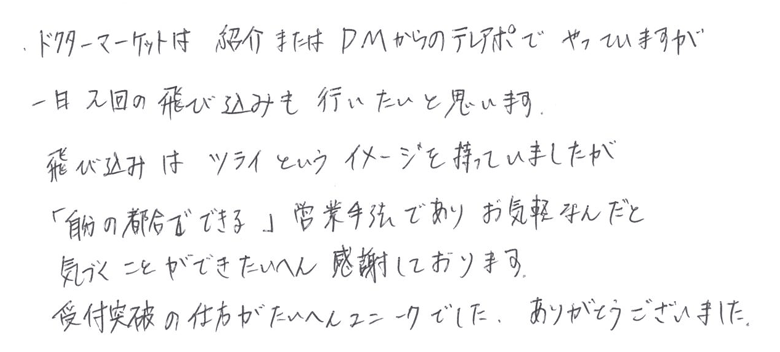 ・ドクターマーケットは 紹介またはDMからのテレアポで やっていますが
一日2回の飛び込みも 行いたいと思います。
飛び込みは ツライというイメージを持っていましたが
「自分の都合でできる」営業手法であり お気軽なんだと
気づくことができたいへん感謝しております。
受付突破の仕方がたいへんユニークでした。ありがとうございました。